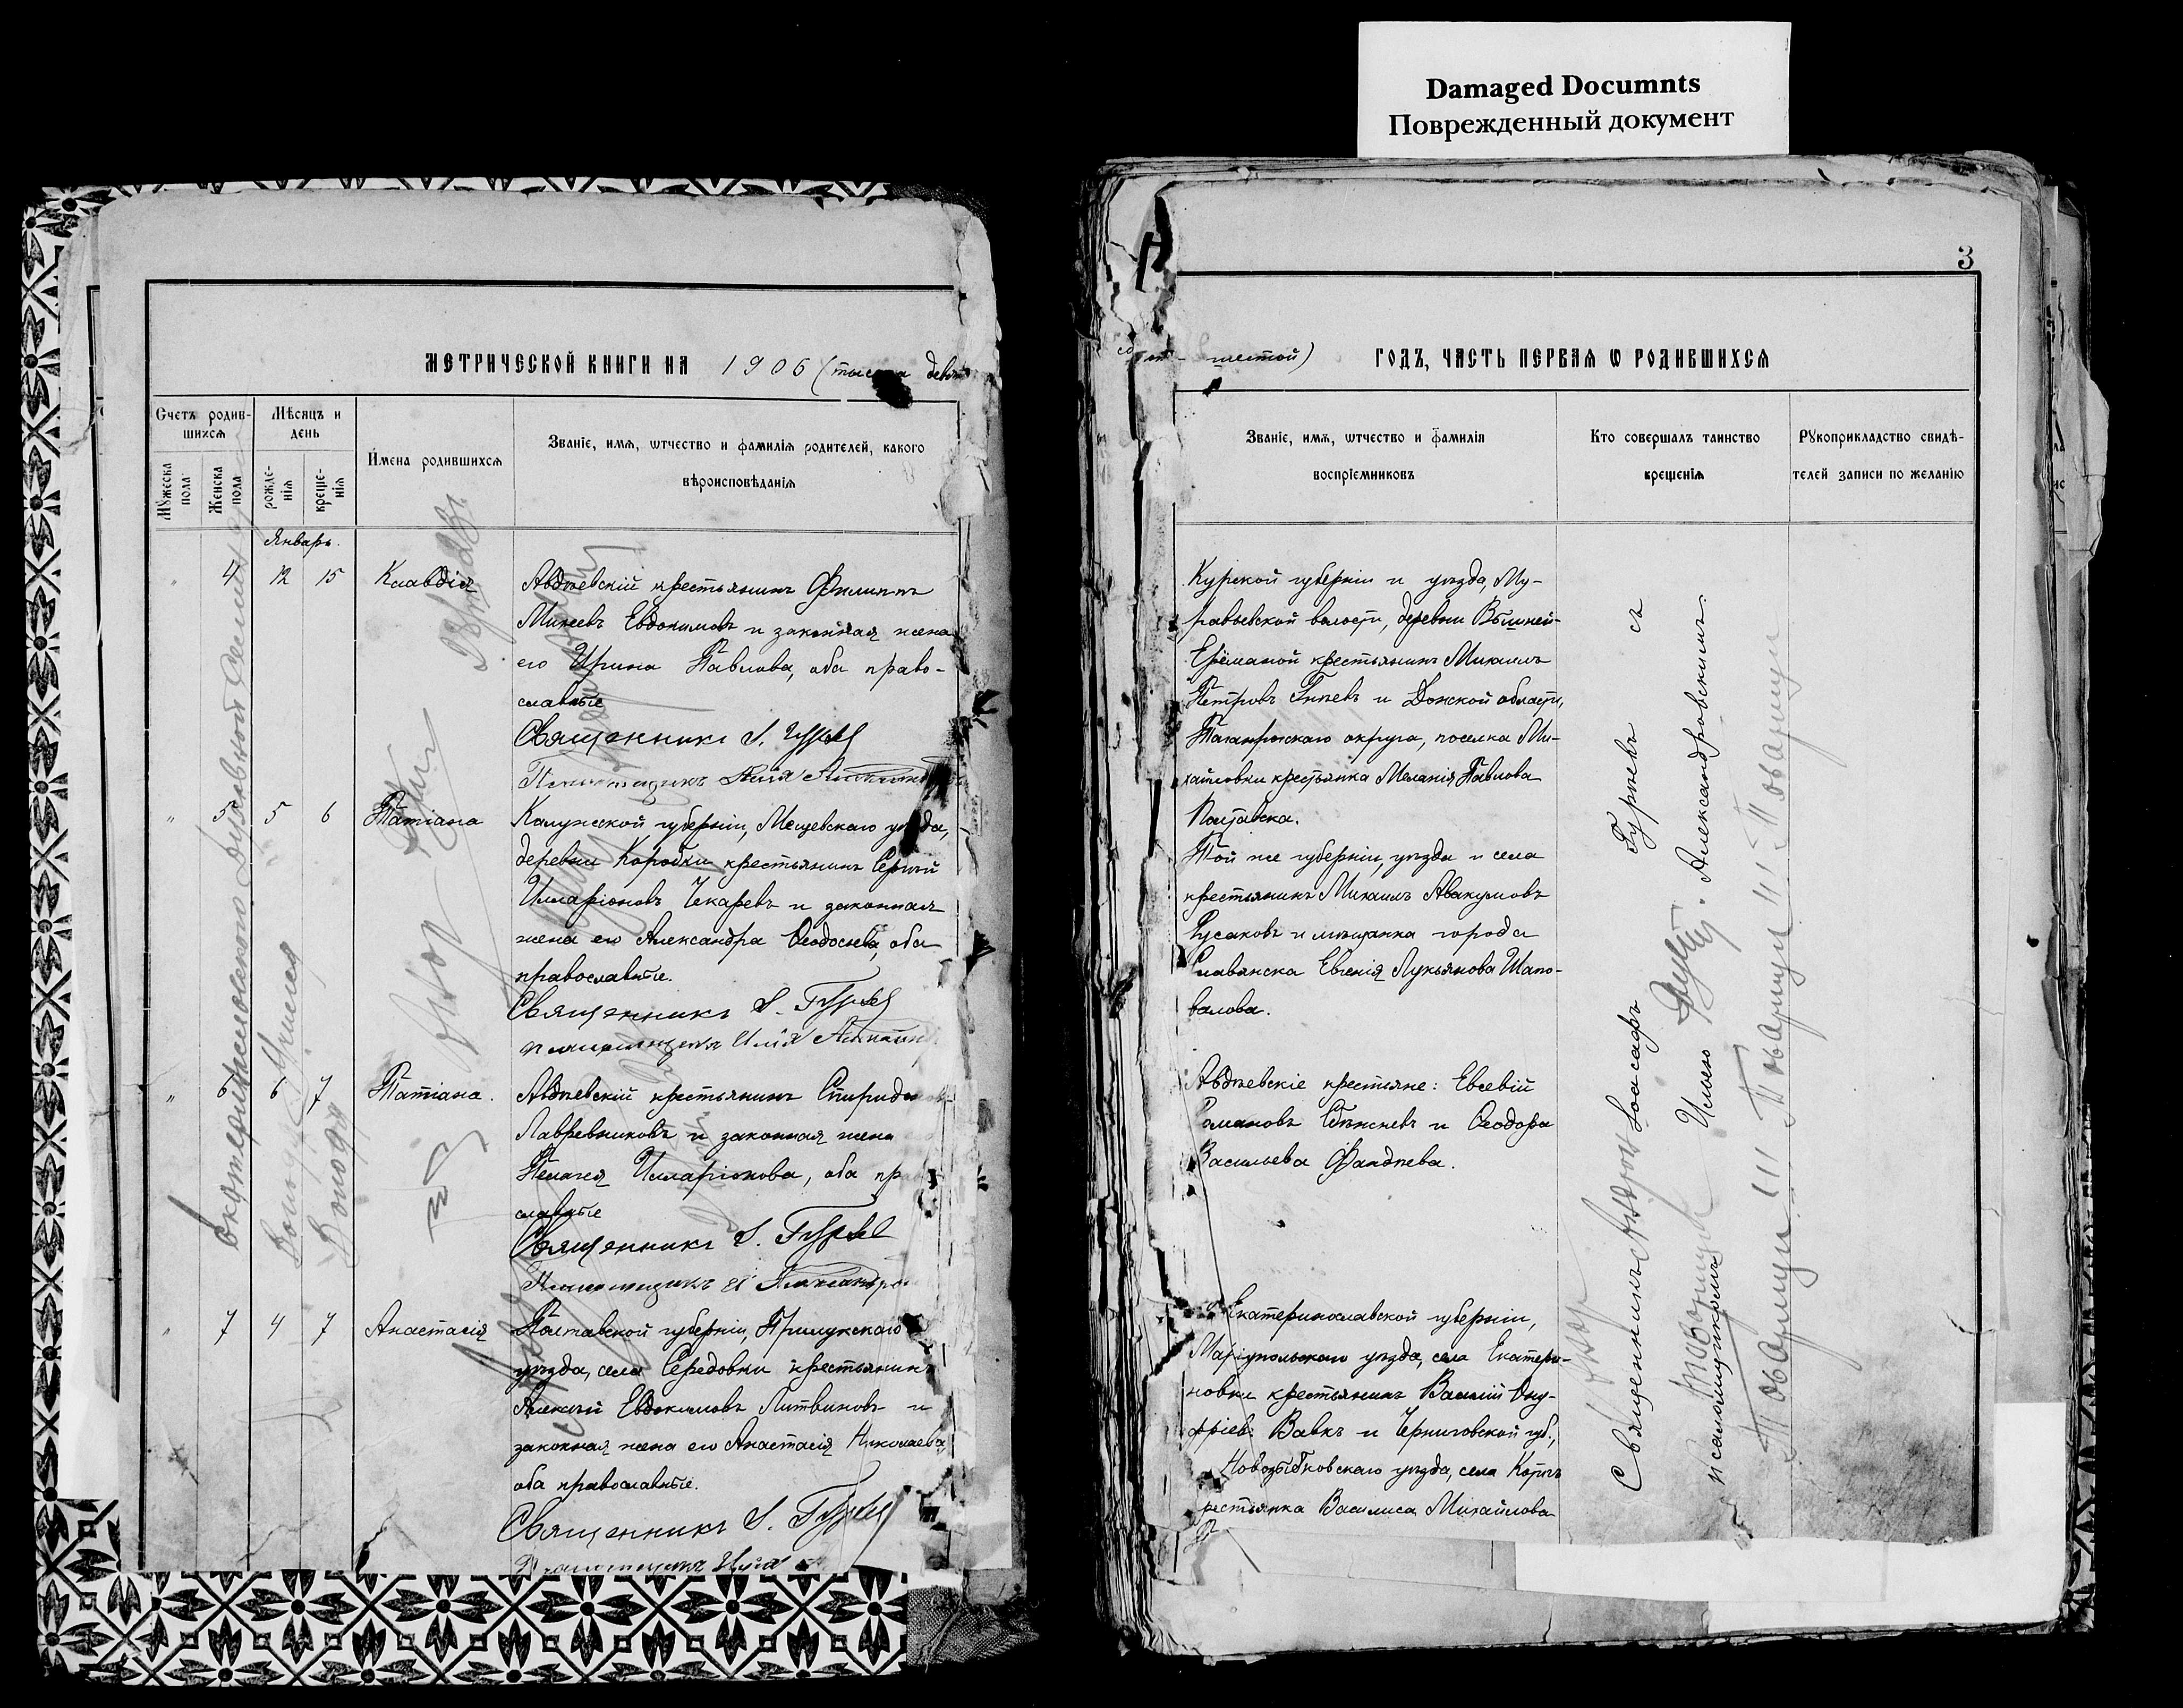 Damaged Documnts
Поврежденный документ
3
МЕТРИЧЕСКОЙ КНИГИ НА 1906 (тысяча девять
Счетъ родив-
шихся
Мужеска пола
Женска пола
Мѣсяцъ и
день
рожде-
нія
креще-
нія
Имена родившихся
Званіе, имя, ѿтчество и фамилія родителей, какого
вѣроисповѣданія
Январь.
" 4 12 15 Клавдія
Авдѣевскій крестьянинъ Филиппъ
Михеевъ Евдокимовъ и законная жена
его Ирина Павлова, оба право-
славные
Священникъ І. Гурьев
Псаломщикъ Илія
" 5 5 6 Татіана
Калужской губерніи, Мещевскаго уѣзда,
деревни Коробки крестьянинъ Сергѣй
Илларіоновъ Чекаревъ и законная
жена его Александра Ѳеодосіева, оба
православные.
Священникъ І. Гурьев
псаломщикъ Илія
" 6 6 7 Татіана.
Авдѣевскій крестьянинъ Спиридонъ
Лавренниковъ и законная жена
Пелагея Илларіонова, оба пра
славные
Священникъ І. Гурьев
Псаломщикъ И Александро
" 7 4 7 Анастасія
Полтавской губерніи, Прилукскаго
уѣзда, села Середовки крестьянинъ
Алексѣй Евдокимовъ Литвиновъ и
законная жена его Анастасія Николаева,
оба православные.
Священникъ І. Гурьев
Псаломщикъ Илія
сот шестой) ГОДЪ, ЧАСТЬ ПЕРВАЯ Ѡ РОДИВШИХСЯ
Званіе, имя, ѿтчество и фамилія
воспріемниковъ
Кто совершалъ таинство
крещенія
Рукоприкладство свидѣ-
телей записи по желанію
Курской губерніи и уѣзда, Му-
равьевской волости, деревни Вышней-
Ерёманой крестьянинъ Михаилъ
Петровъ Гнѣевъ и Донской области,
Таганрогскаго округа, поселка Ми-
хайловки крестьянка Меланія Павлова
Полтавска.
Той же губерніи, уѣзда и села
крестьянинъ Михаилъ Авакумовъ
Русаковъ и мѣщанка города
Славянска Евгенія Лукьянова Шапо-
валова.
Авдѣевскіе крестьяне: Евсевій
Романовъ и Ѳеодора
Васильева Фандѣева.
Екатеринославской губерніи,
Маріупольскаго уѣзда, села Екатери-
новки крестьянинъ Василій Ону-
фріевъ Вавкъ и Черниговской губ.,
Новозыбковскаго уѣзда, села
рестьянка Василиса Михайлова
Священникъ Іоасафъ Гурьевъ съ
псаломщикомъ Ильею Александровскимъ.